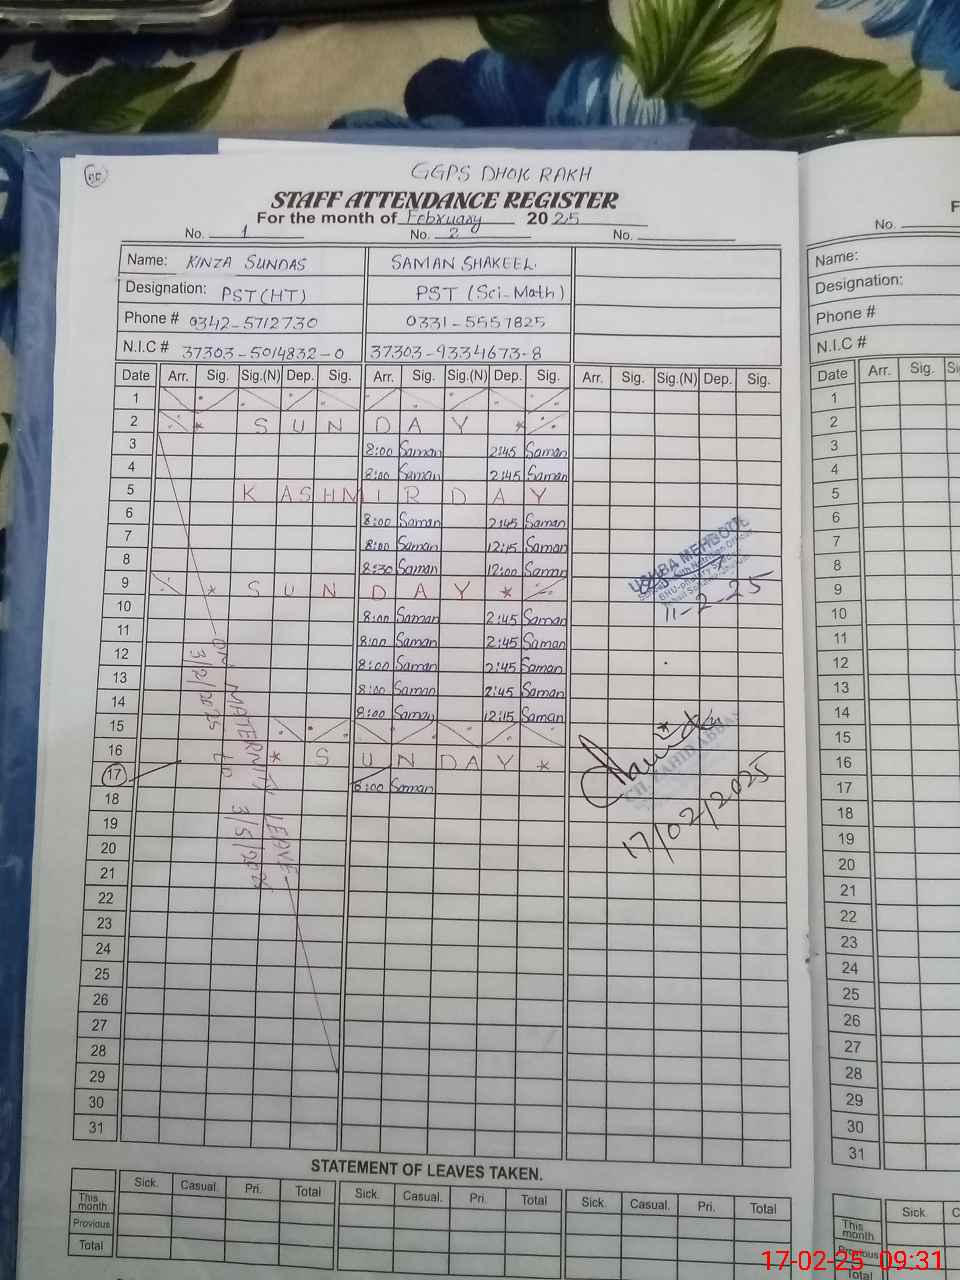 GGPS DHOK RAKH
STAFF ATTENDANCE REGISTER
For the month of February 2025
No. 1 No. 2 No.
Name: KINZA SUNDAS SAMAN SHAKEEL.
Designation: PST (HT) PST (Sci-Math)
Phone # 0342-5712730 0331-5557825
N.I.C # 37303-5014832-0 37303-9334673-8
Date Arr. Sig. Sig.(N) Dep. Sig. Arr. Sig. Sig.(N) Dep. Sig. Arr. Sig. Sig.(N) Dep. Sig.
1
2 * SUNDAY *
3 8:00 Saman 2:45 Saman
4 8:00 Saman 2:45 Saman
5 KASHMIR DAY
6 8:00 Saman 2:45 Saman
7 8:00 Saman 12:15 Saman
8 8:30 Saman 12:00 Saman
9 * SUNDAY *
10 8:00 Saman 2:45 Saman
11 8:00 Saman 2:45 Saman
12 8:00 Saman 2:45 Saman
13 8:00 Saman 2:45 Saman
14 8:00 Saman 12:15 Saman
15
16 * SUNDAY *
17 8:00 Saman
18
19
20
21
22
23
24
25
26
27
28
29
30
31
ON MATERNITY LEAVE
3/2/2025 to 3/5/2025
11-2-25
17/02/2025
STATEMENT OF LEAVES TAKEN.
Sick. Casual. Pri. Total Sick. Casual. Pri. Total Sick. Casual. Pri. Total
This month
Previous
Total
No.
Name:
Designation:
Phone #
N.I.C #
Date Arr. Sig.
1
2
3
4
5
6
7
8
9
10
11
12
13
14
15
16
17
18
19
20
21
22
23
24
25
26
27
28
29
30
31
Sick.
This month
Previous
Total
17-02-25 09:31